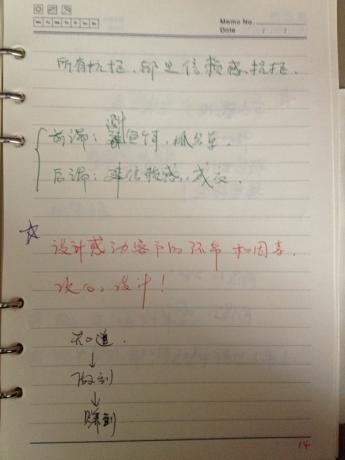 Memo No.
Date / /
所有抗拒,都是信赖感抗拒.
前端:测鱼饵,抓名单.
后端:建信赖感,成交.
设计感动客户的环节和因素.
设计!
知道.
↓
做到
↓
赚到
14